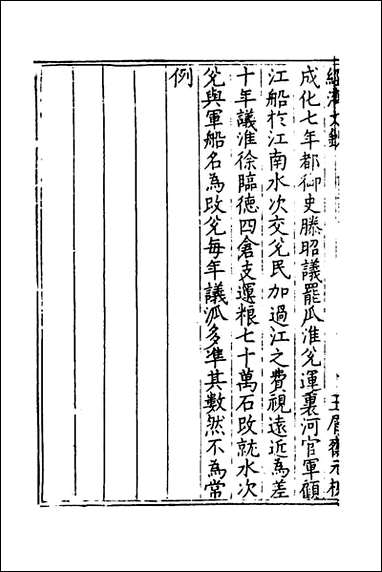 成化七年都御史滕昭議罷瓜淮兊運裏河官軍顧
江船於江南水次交兊民加過江之費視遠近為差
十年議淮徐臨德四倉支運粮七十萬石改就水次
兊與軍船名為改兊每年議派多準其數然不為常
例